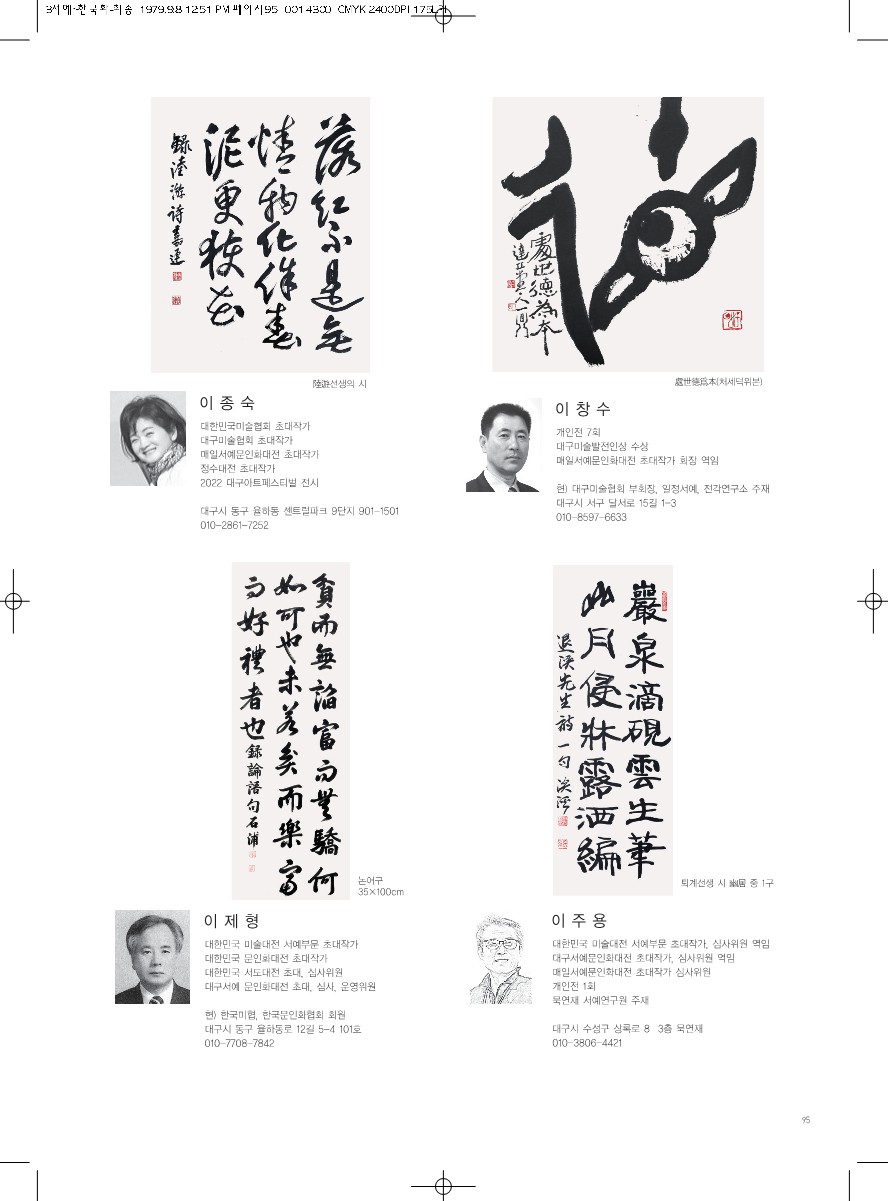 3서예-한국화-최종 1979.9.8 12:51 PM 페이지95 001 4300 CMYK 2400DPI 175LPI
落紅不是無
情物化作春
泥更護花
錄陸游詩
處世德為本
陸遊선생의 시
處世德爲本(처세덕위본)
이종숙
대한민국미술협회 초대작가
대구미술협회 초대작가
매일서예문인화대전 초대작가
정수대전 초대작가
2022 대구아트페스티벌 전시
대구시 동구 율하동 센트럴파크 9단지 901-1501
010-2861-7252
이창수
개인전 7회
대구미술발전인상 수상
매일서예문인화대전 초대작가 회장 역임
현) 대구미술협회 부회장, 일정서예, 전각연구소 주재
대구시 서구 달서로 15길 1-3
010-8597-6633
貧而無諂富而無驕何
如可也未若貧而樂富
而好禮者也錄論語句石浦
巖泉滴硯雲生筆
山月侵牀露洒編
退溪先生詩一句
논어구
35×100cm
퇴계선생 시 幽居 중 1구
이제형
대한민국 미술대전 서예부문 초대작가
대한민국 문인화대전 초대작가
대한민국 서도대전 초대, 심사위원
대구서예 문인화대전 초대, 심사, 운영위원
현) 한국미협, 한국문인화협회 회원
대구시 동구 율하동로 12길 5-4 101호
010-7708-7842
이주용
대한민국 미술대전 서예부문 초대작가, 심사위원 역임
대구서예문인화대전 초대작가, 심사위원 역임
매일서예문인화대전 초대작가 심사위원
개인전 1회
묵연재 서예연구원 주재
대구시 수성구 상록로 8 3층 묵연재
010-3806-4421
95